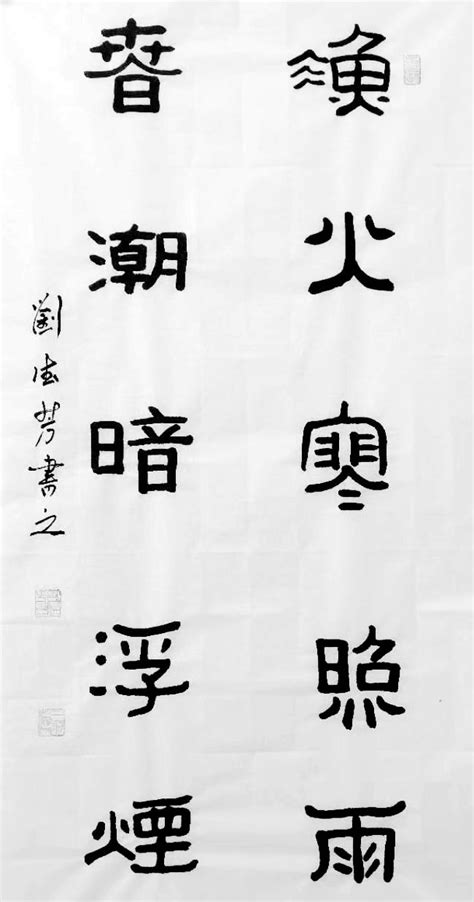 漁火寒照雨
春潮暗浮煙
劉德芳書之